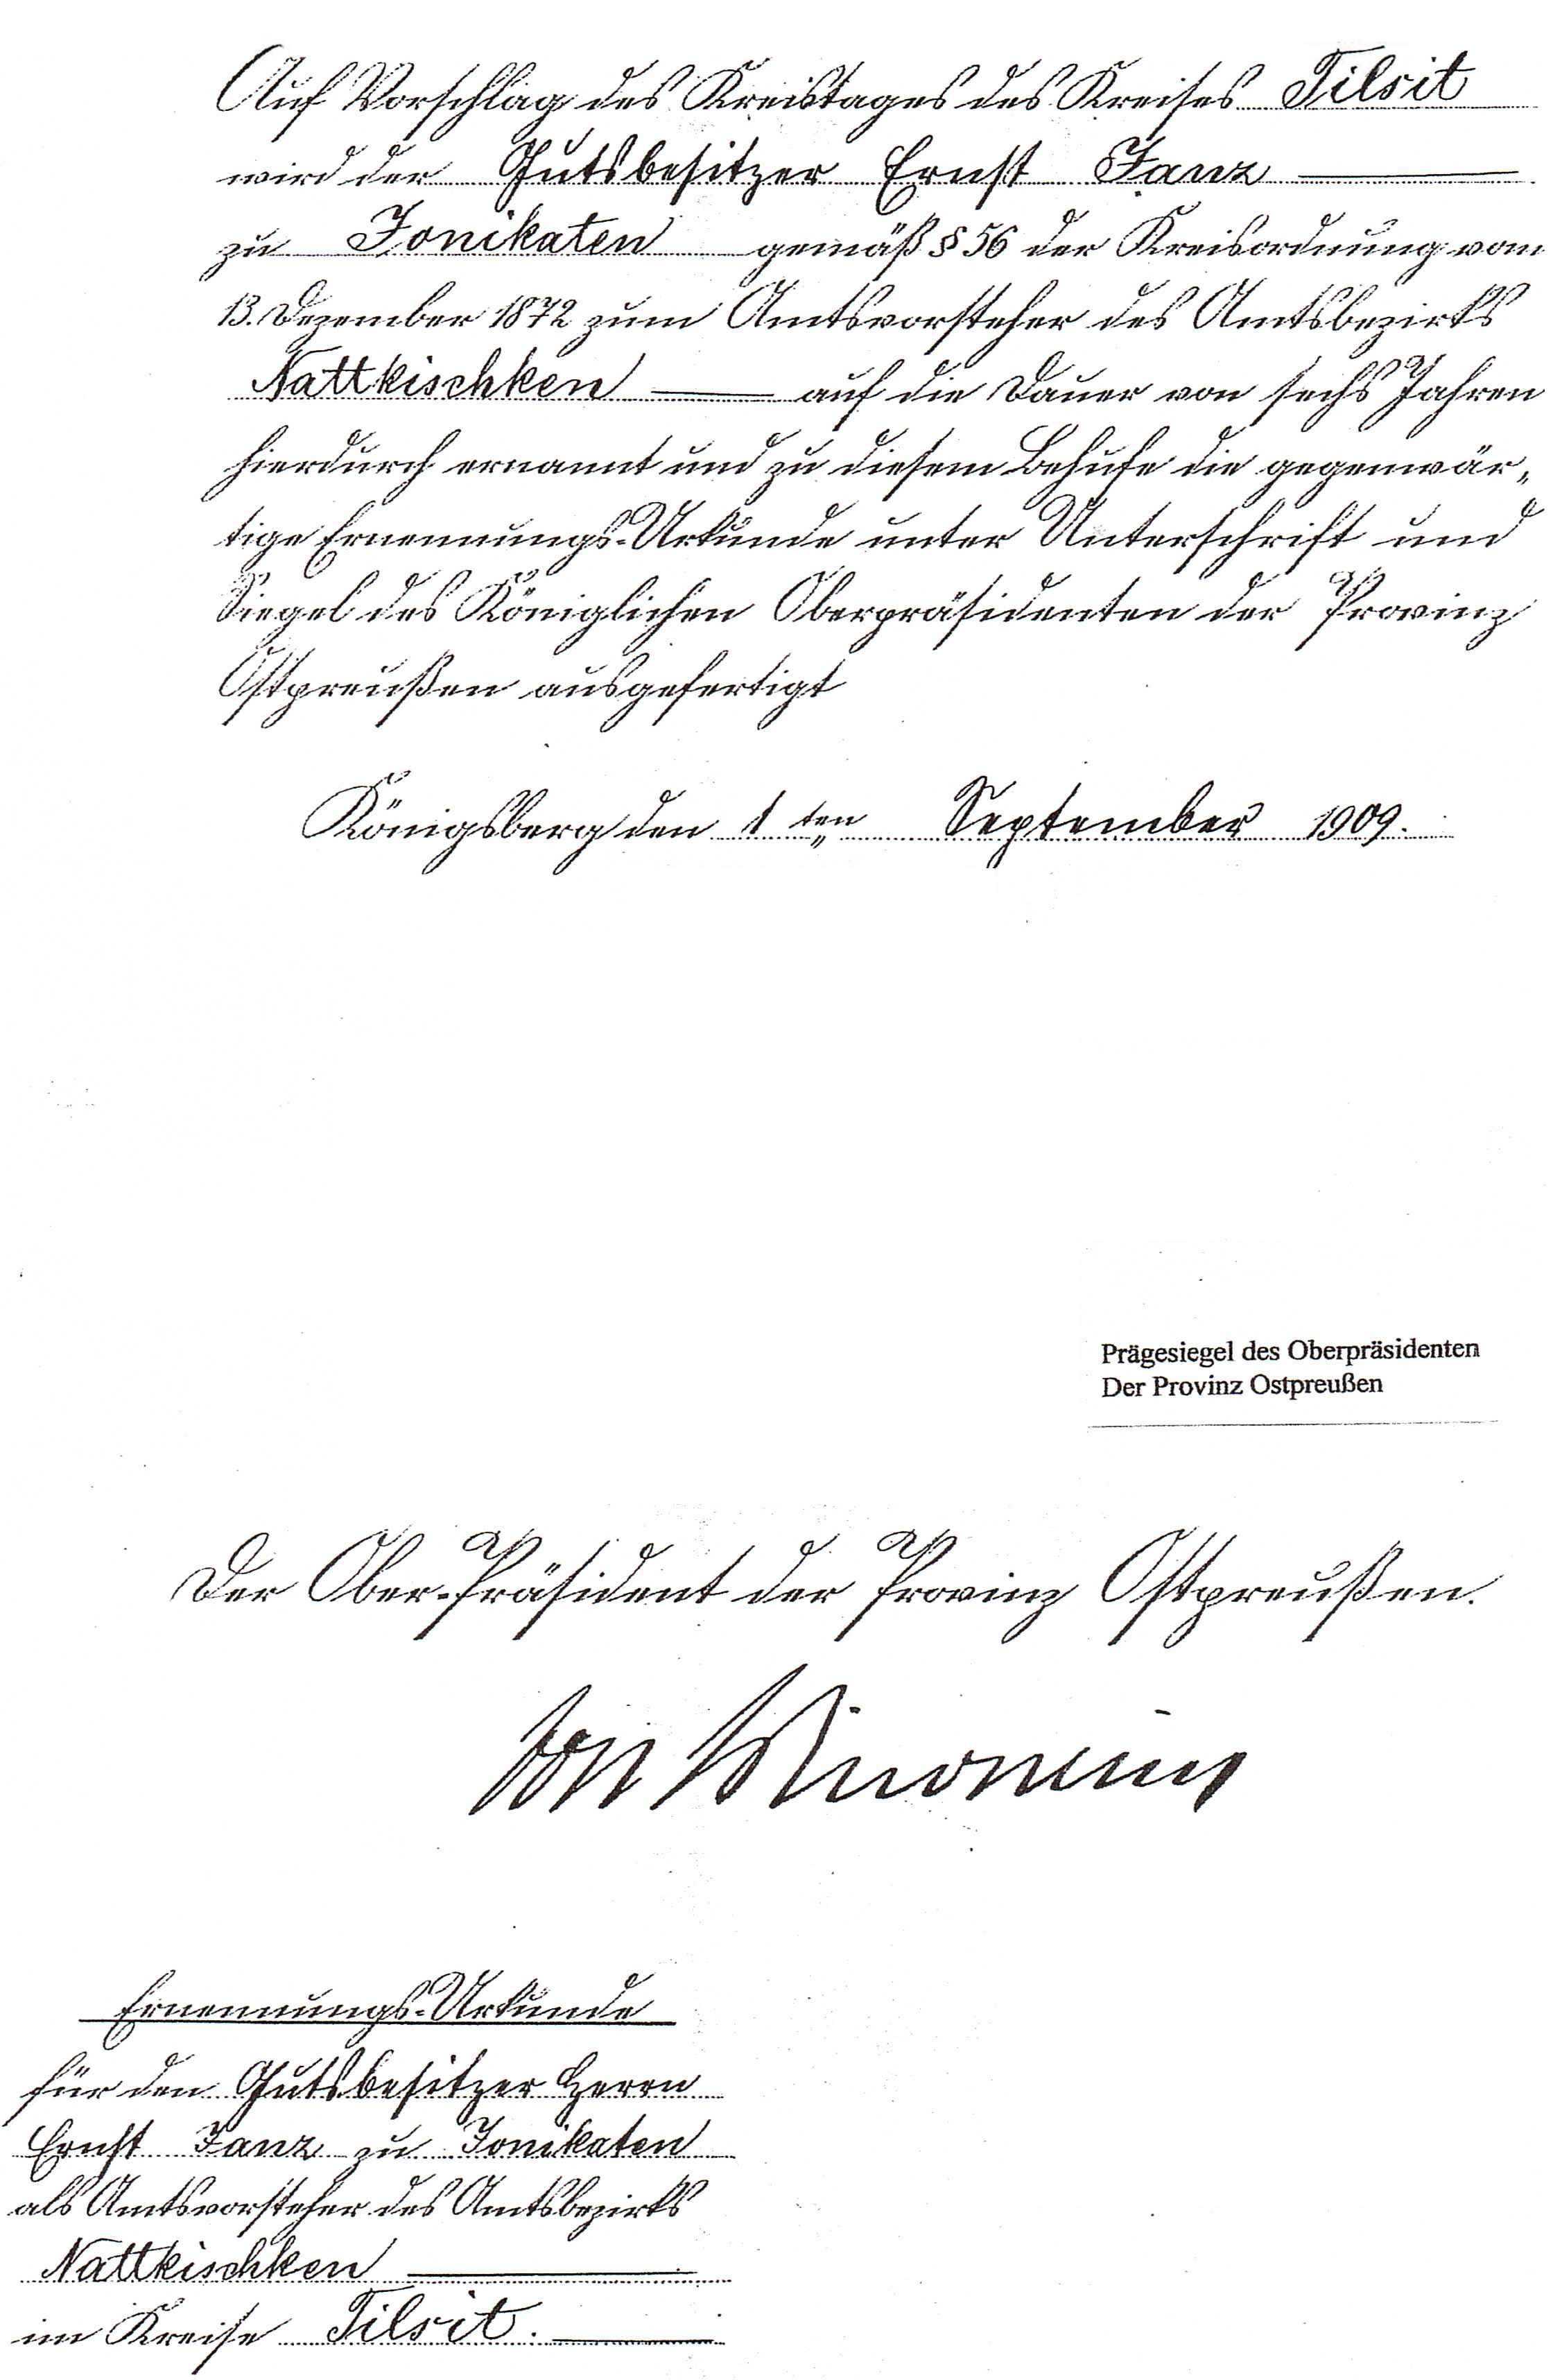 Auf Vorschlag des Kreistages des Kreises Tilsit
wird der Gutsbesitzer Ernst Janz
zu Jonikaten gemäß § 56 der Kreisordnung vom
13. Dezember 1872 zum Amtsvorsteher des Amtsbezirks
Nattkischken auf die Dauer von sechs Jahren
hierdurch ernannt und zu diesem Behufe die gegenwär-
tige Ernennungs-Urkunde unter Unterschrift und
Siegel des Königlichen Oberpräsidenten der Provinz
Ostpreußen ausgefertigt
Königsberg den 1ten September 1909.
Prägesiegel des Oberpräsidenten
Der Provinz Ostpreußen
Der Ober-Präsident der Provinz Ostpreußen.
von
Ernennungs-Urkunde
für den Gutsbesitzer Herrn
Ernst Janz zu Jonikaten
als Amtsvorsteher des Amtsbezirks
Nattkischken
im Kreise Tilsit.